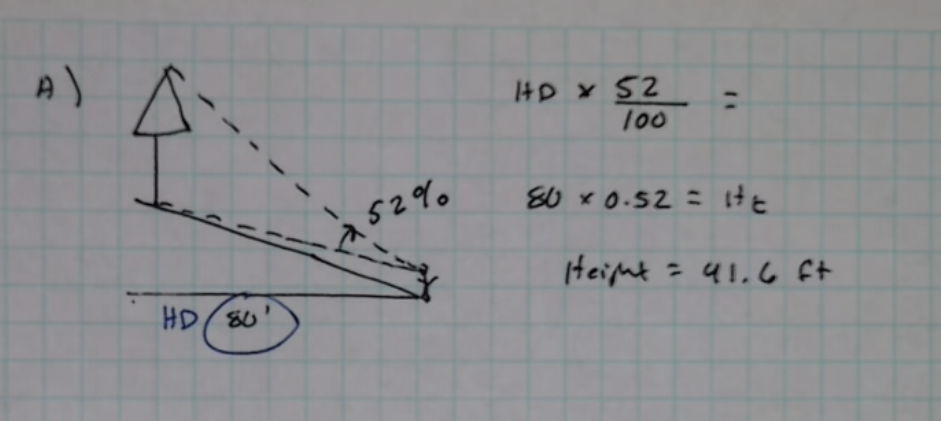 A)
HD × 52/100 =
52%
80 × 0.52 = Ht
Height = 41.6 ft
HD 80'